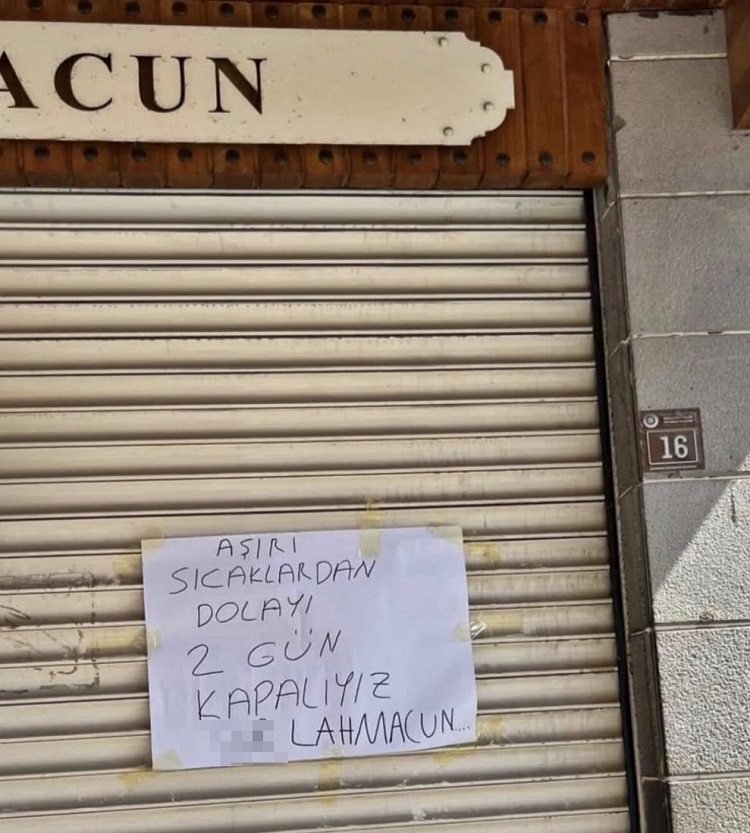 ACUN
16
AŞIRI
SICAKLARDAN
DOLAYI
2 GÜN
KAPALIYIZ
LAHMACUN...